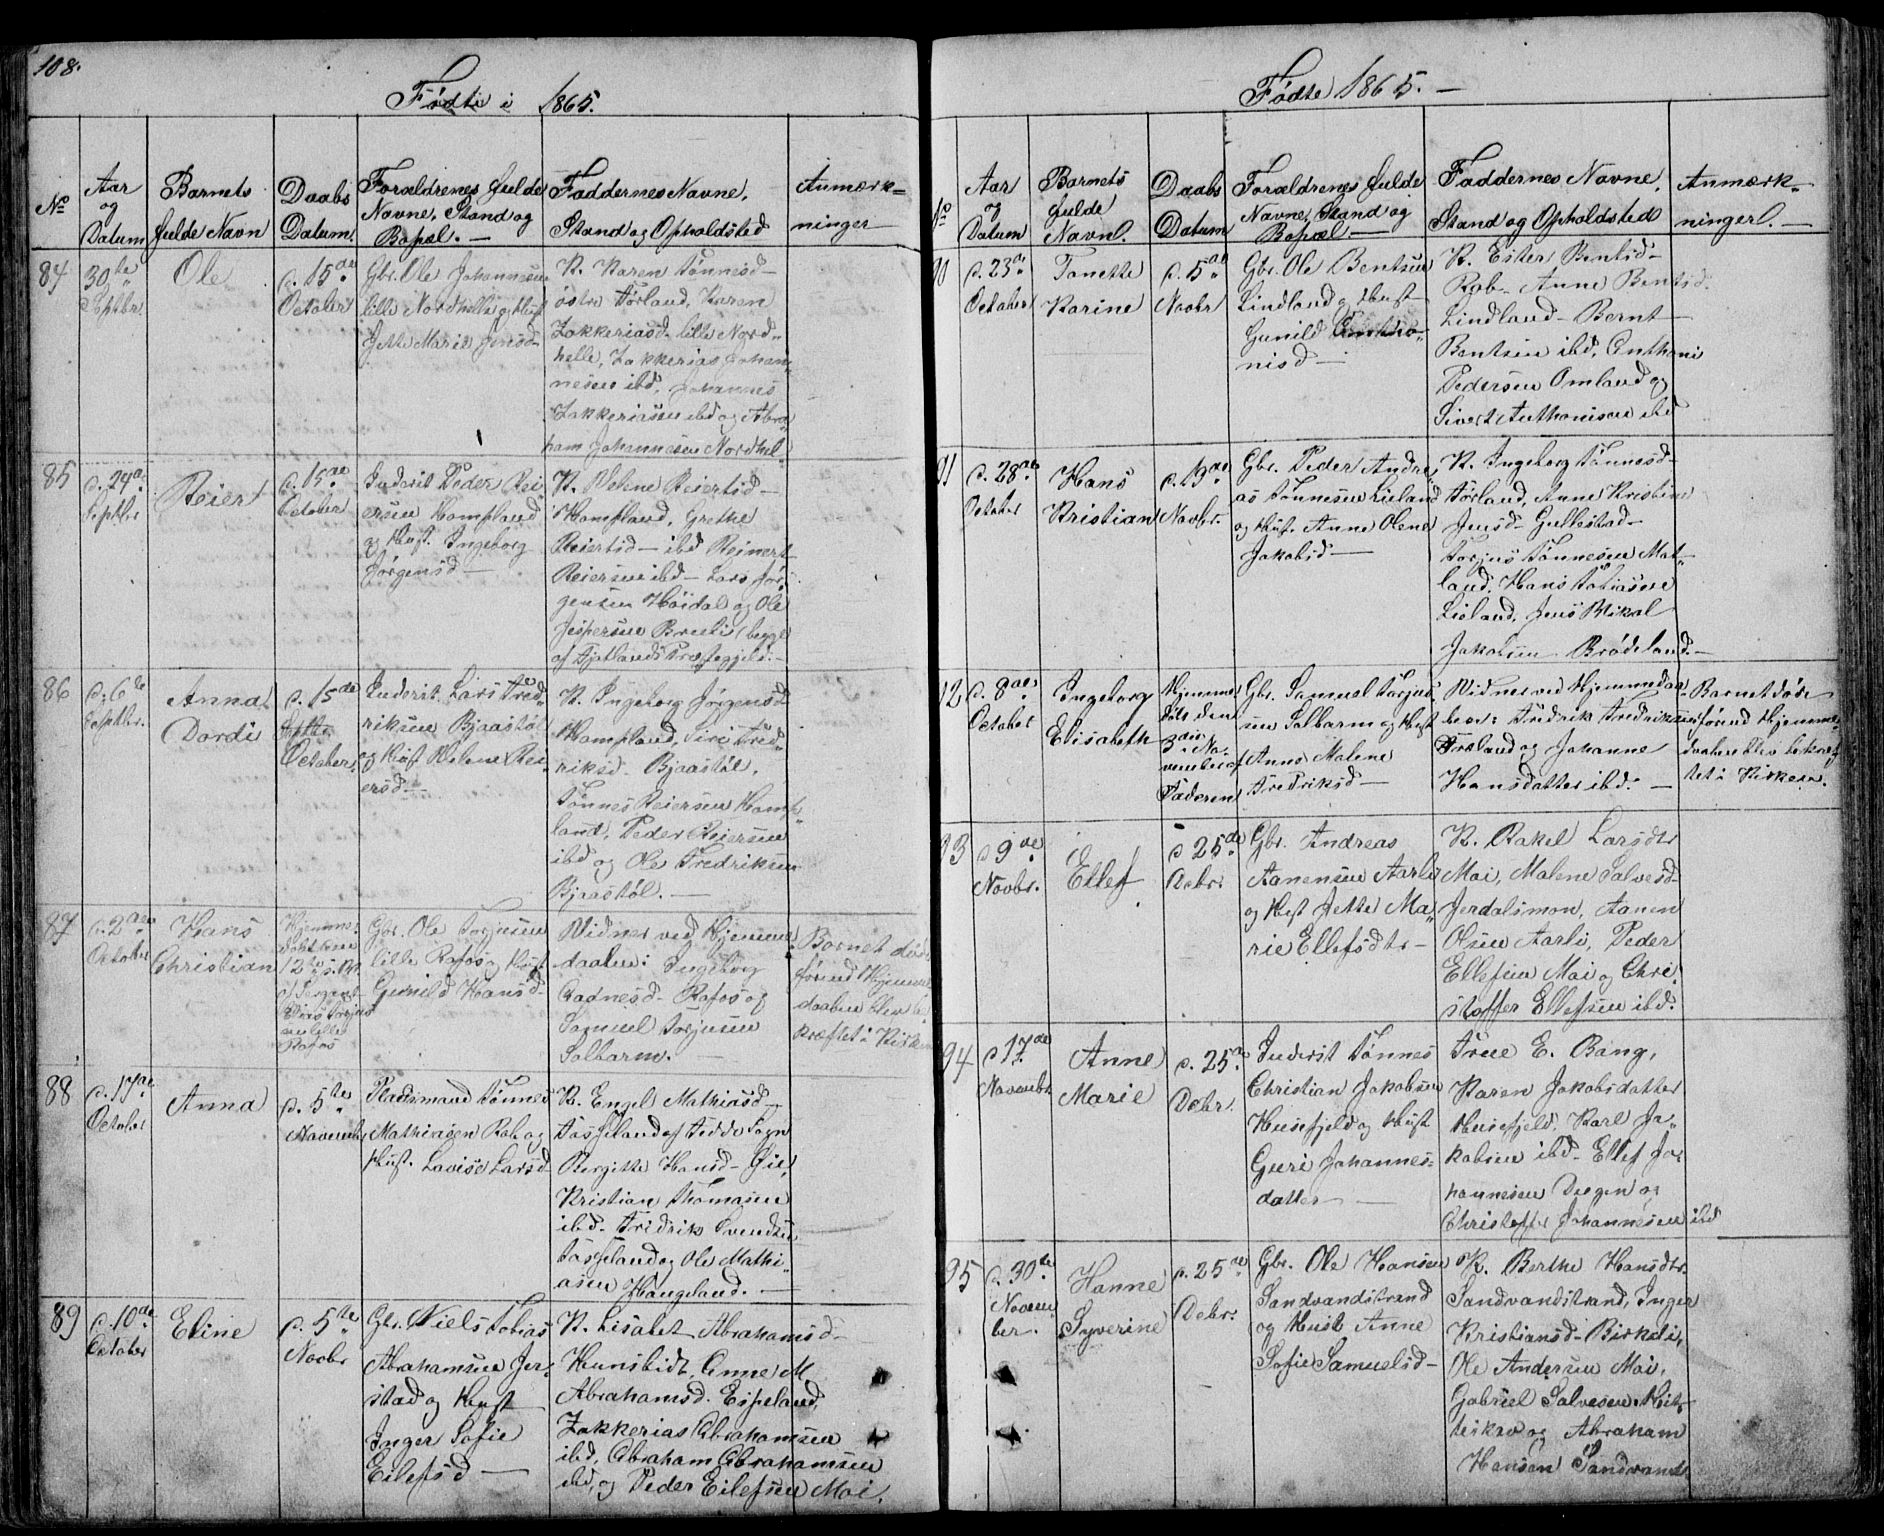 108.
Fødte i 1865.
No
Aar og Datum
Barnets fulde Navn
Daabs Datum.
Forældrenes fulde Navne, Stand og Bopæl. —
Faddernes Navne, Stand og Opholdsted
Anmærkninger
84
30te Septbr.
Ole
d. 15de October
Gbr. Ole Johannesen
lille Nordhelle og Hust
Jette Marie Jensd—
K. Karen Tønnesd—
østre Tørland, Karen
Zakkeriasd. lille Nord-
helle, Zakkerias Johan-
nesen ibd, Johannes
Zakkeriasen ibd og Abra-
ham Johannesen Nordhel-
85
d. 24de Septbr
Reiert
d. 15de October
Inderst Peder Rei-
ersen Hompland
og Hust. Ingeborg
Jørgensd—
K. Helene Reiertsd—
Hompland, Grethe
Reiertsd— ibd Reinert
Reiersen ibd— Lars Jør-
gensen Høidal og Ole
Jespersen Breeli (begge
af Fjotlands Præstegjeld.—
86
d. 6te Septbr.
Anna
Dordi
d. 15de
October.
Inderst. Lars Fred-
riksen Bjaastøl
og Hust Helene Rei-
ersd—
K. Ingeborg Jørgensd
Hompland, Siri Fred-
riksd. Bjaastøl,
Tønnes Reiersen Homp-
land, Peder Reiersen
ibd og Ole Fredriksen
Bjaastøl. —
87
d. 2den October
Hans
Christian
Hjemme-
døbt den
12te
af Sergant
Elias Torjus-
sen lille
Rafos
Gbr. Ole Torjusen
lille Rafos og Hust
Gunild Hansd—
Vidner ved Hjemme
daaben: Ingeborg
Aadnesd— Rafos og
Samuel Torjusen
Salbarm. —
Barnet døde
førend Hjemme
daaben blev be-
kræftet i Kirken
88
d. 17de October
Anna
d. 5te November
Pladsmand Tønnes
Mathiasen Rob og
Hust. Lovise Larsd
K. Engel Mathiasd—
Tasseland af Fedde Sogn
Bergitte Hansd— Gie,
Kristian Thomasen
ibd— Fredrik Svendsen
Tasseland og Ole Mathi-
asen Haugeland. —
89
d. 10de October
Eline
d. 5te Novbr
Gbr. Niels Tobias
Abrahamsen Jer-
stad og Hust
Inger Sofie
Eilefsd—
K. Lisabet Abrahamsd—
Hunsbidt, Anne M.
Abrahamsd. Espeland,
Zakkerias Abrahamsen
ibd, Abraham Abrahamsen
ibd, og Peder Eilefsen Moi.
Fødte 1865. —
No
Aar og Datum
Barnets fulde Navn.
Daabs Datum
Forældrenes fulde Navne, Stand og Bopæl —
Faddernes Navne, Stand og Opholdsted
Anmærkninger. —
90
d. 23de October
Tonette
Karine
d. 5te Novbr
Gbr. Ole Bentsen
Lindland og Hust
Gunild Antho-
nisd—
K. Ester Bentsd—
Rob— Anne Bentsd.
Lindland— Bernt
Bentsen ibd, Anthoni
Pedersen Omland og
Sivert Anthonisen ibd
91
d. 28de October
Hans
Kristian
d. 19de Novbr.
Gbr. Peder Andre-
as Tønnesen Lieland
og Hust. Anne Olene
Jakobsd—
K. Ingeborg Tønnesd—
Tørland, Anne Kristine
Jensd— Gullestad—
Torjus Tønnesen Mat-
land, Hans Tobiasen
Lieland, Jens Mikal
Jakobsen Brødeland—
92
d. 8de October
Ingeborg
Elisabeth
Hjemme-
døbt den
3die No-
vember af
Faderen
Gbr. Samuel Torjus-
sen Salbarm og Hust
Anne Malene
Fredriksd—
Vidner ved Hjemmedaa-
ben: Fredrik Fredriksen
Træland og Johanne
Hansdatter ibd. —
Barnet døde
førend Hjemme-
daaben blev bekræf-
tet i Kirken.
93
d 9de Novbr.
Ellef
d 25de Debr
Gbr. Andreas
Aanensen Aarli
og Hust Jette Ma-
rie Ellefsdtr—
K. Rakel Larsdtr
Moi, Malene Salvesd—
Jerdalsmon, Aanen
Olsen Aarli, Peder
Ellefsen Moi og Chri-
stoffer Ellefsen ibd.
94
d 17de November
Anne
Marie
d. 25de Debr.
Inderst Tønnes
Christian Jakobsen
Husefjeld og Hust
Guri Johannes-
datter —
Frue E. Bang,
Karen Jakobsdatter
Husefjeld, Karl Ja-
kobsen ibd— Ellef Jo-
hannesen Dugan og
Christoffer Johannesen ibd
95
d. 30te Novem-
ber.
Hanne
Syverine
d. 25de Debr.
Gbr. Ole Hansen
Sandvandstrand
og Hust Anne
Sofie Samuelsd—
K. Berthe Hansdtr
Sandvandstrand, Inger
Kristiansd— Birkeli,
Ole Andersen Moi,
Gabriel Salvesen Hit-
teskro og Abraham
Hansen Sandvandst